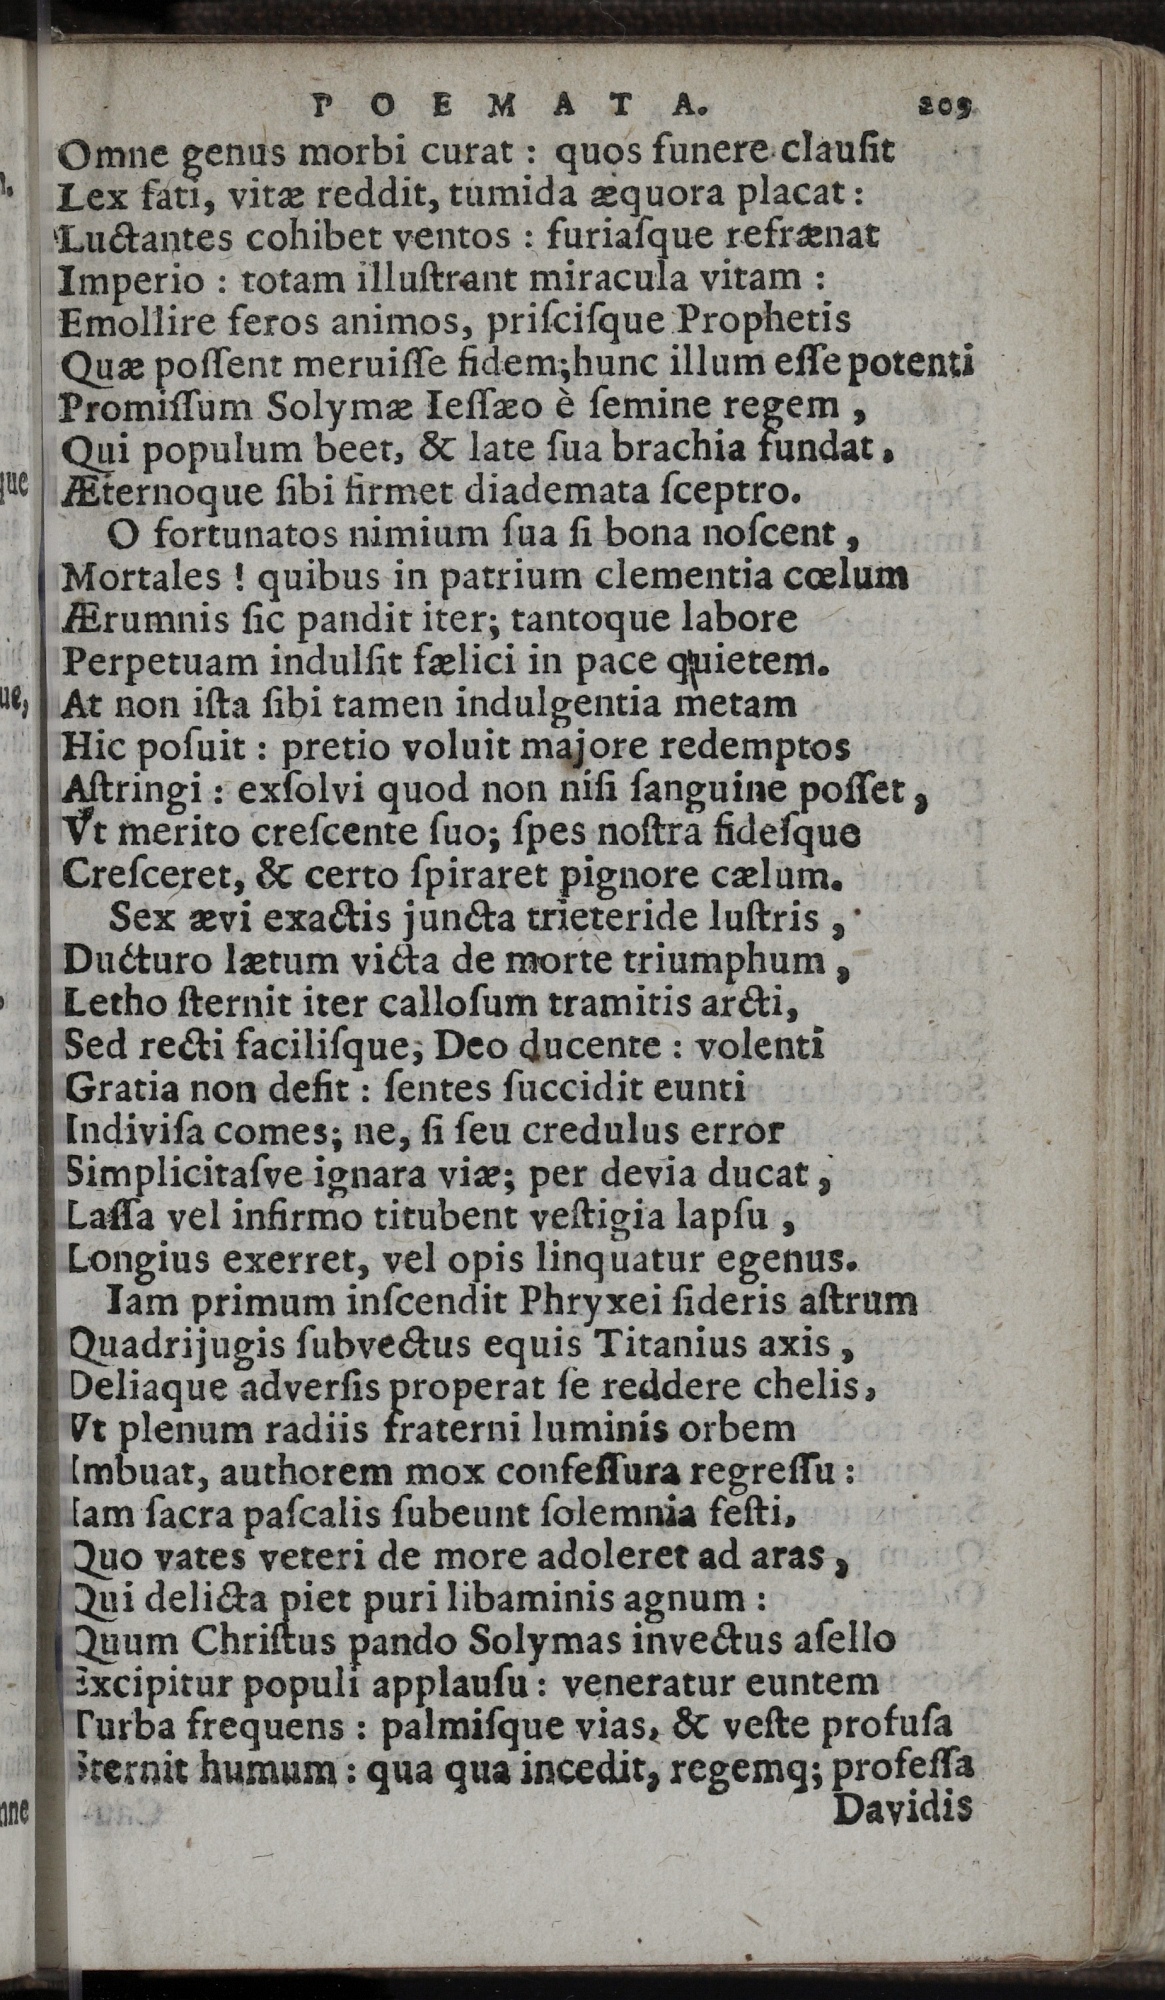 POEMATA. 209
Omne genus morbi curat : quos funere clauſit
Lex fati, vitæ reddit, tumida æquora placat :
Luctantes cohibet ventos : furiaſque refrænat
Imperio : totam illuſtrant miracula vitam :
Emollire feros animos, priſciſque Prophetis
Quæ poſſent meruiſſe fidem; hunc illum eſſe potenti
Promiſſum Solymæ Ieſſæo è ſemine regem ,
Qui populum beet, & late ſua brachia fundat .
Æternoque ſibi firmet diademata ſceptro.
O fortunatos nimium ſua ſi bona noſcent ,
Mortales ! quibus in patrium clementia cœlum
Ærumnis ſic pandit iter; tantoque labore
Perpetuam indulſit fælici in pace quietem.
At non iſta ſibi tamen indulgentia metam
Hic poſuit : pretio voluit majore redemptos
Aſtringi : exſolvi quod non niſi ſanguine poſſet ,
Vt merito creſcente ſuo; ſpes noſtra fideſque
Creſceret, & certo ſpiraret pignore cælum.
Sex ævi exactis juncta trieteride luſtris ,
Ducturo lætum victa de morte triumphum ,
Letho ſternit iter calloſum tramitis arcti,
Sed recti faciliſque; Deo ducente : volenti
Gratia non defit : ſentes ſuccidit eunti
Indiviſa comes; ne, ſi ſeu credulus error
Simplicitaſve ignara viæ; per devia ducat ,
Laſſa vel infirmo titubent veſtigia lapſu ,
Longius exerret, vel opis linquatur egenus.
Iam primum inſcendit Phryxei ſideris aſtrum
Quadrijugis ſubvectus equis Titanius axis ,
Deliaque adverſis properat ſe reddere chelis,
Vt plenum radiis fraterni luminis orbem
Imbuat, authorem mox confeſſura regreſſu :
Iam ſacra paſcalis ſubeunt ſolemnia feſti,
Quo vates veteri de more adoleret ad aras ,
Qui delicta piet puri libaminis agnum :
Quum Chriſtus pando Solymas invectus aſello
Excipitur populi applauſu : veneratur euntem
Turba frequens : palmiſque vias, & veſte profuſa
Sternit humum : qua qua incedit, regemq; profeſſa
Davidis